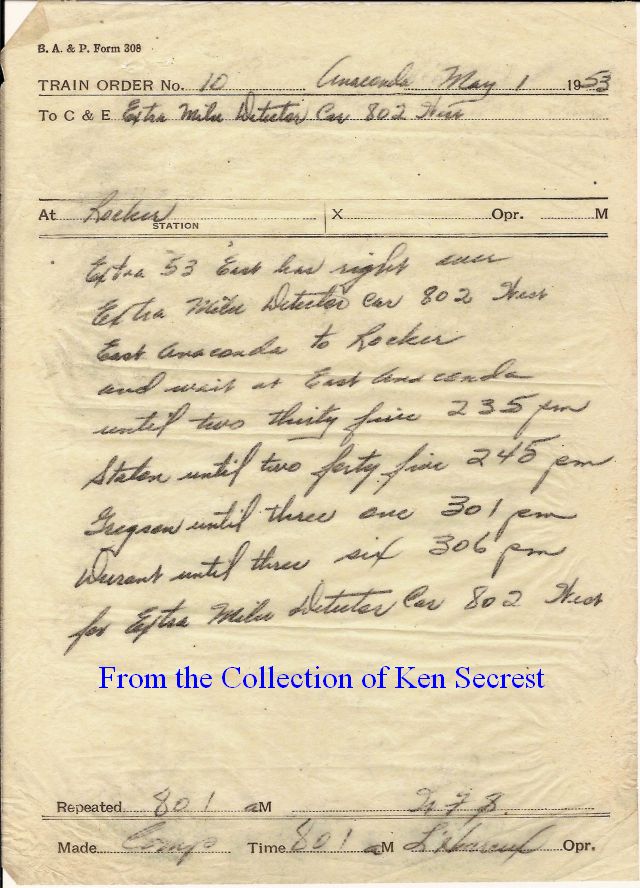 B. A. & P. Form 308
TRAIN ORDER No. 10 Anaconda May 1 1953
To C & E Extra Milw Detector Car 802 West
At Rocker STATION X Opr. M
Extra 53 East has right over
Extra Milw Detector Car 802 West
East Anaconda to Rocker
and wait at East Anaconda
until two thirty five 235 pm
Staten until two forty five 245 pm
Gregson until three one 301 pm
Durant until three six 306 pm
for Extra Milw Detector Car 802 West
From the Collection of Ken Secrest
Repeated 801 aM
Made Comp Time 801 aM Opr.